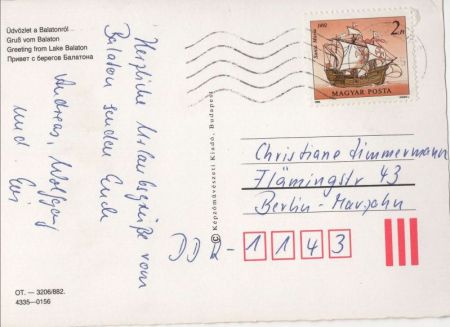 Üdvözlet a Balatonról
Gruß vom Balaton
Greeting from Lake Balaton
Привет с берегов Балатона
Herzliche Urlaubsgrüße vom
Balaton senden Euch
Andreas, Wolfgang
und
© Képzőművészeti Kiadó, Budapest
1492
Santa Maria
2 Ft
MAGYAR POSTA
Christiane Zimmermann
Flämingstr 43
Berlin - Marzahn
DDR - 1143
OT. — 3206/882.
4335—0156